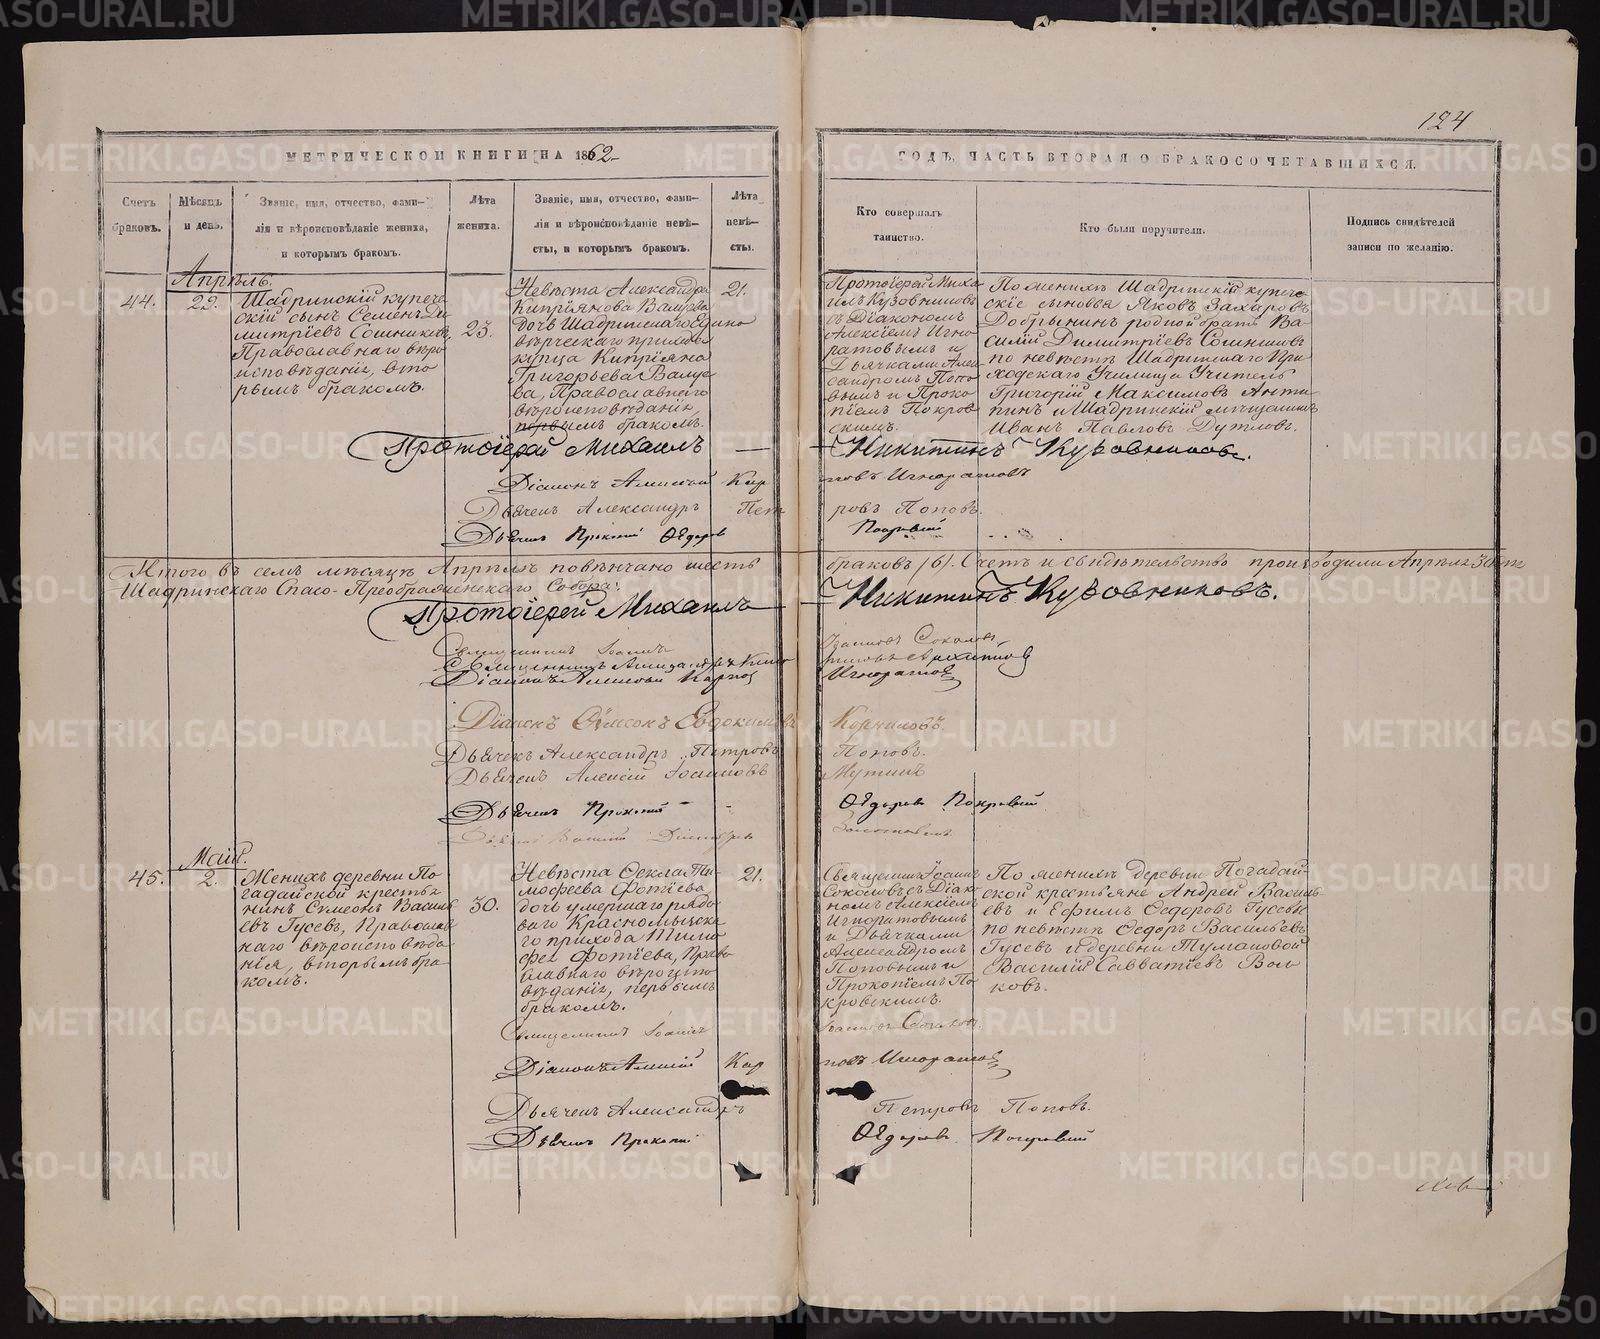 124
МЕТРИЧЕСКОЙ КНИГИ НА 1862
ГОДЪ, ЧАСТЬ ВТОРАЯ О БРАКОСОЧЕТАВШИХСЯ.
Счетъ
браковъ.
Мѣсяцъ
и день.
Званіе, имя, отчество, фами-
лія и вѣроисповѣданіе жениха,
и которымъ бракомъ.
Лѣта
жениха.
Званіе, имя, отчество, фами-
лія и вѣроисповѣданіе невѣ-
сты, и которымъ бракомъ.
Лѣта
невѣ-
сты.
Кто совершалъ
таинство.
Кто были поручители.
Подпись свидѣтелей
записи по желанію.
Апрѣль.
44.
22.
Шадринскій купече
скій сынъ Семенъ Ди
митріевъ Сошниковъ,
Православнаго вѣро
исповѣданія, вто
рымъ бракомъ.
23.
Невѣста Александра
Кипріянова
дочь Шадринскаго Едино
вѣрческаго прихода
купца Кипріяна
Григорьева
ва, Православнаго
вѣроисповѣданія,
первымъ бракомъ.
21.
Протоіерей Миха
илъ Кузовниковъ
съ Діакономъ
Алексіемъ Игно
ратовымъ и
Дьячками Алек
сандромъ Попо
вымъ и Проко
піемъ Покров
скимъ.
По женихѣ Шадринскій купече
скіе сыновья Яковъ Захаровъ
Добрынинъ родной братъ Ва
силій Димитріевъ Сошниковъ
по невѣстѣ Шадринскаго При
ходскаго Училища Учитель
Григорій Максимовъ Анти
пинъ и Шадринскій мѣщанинъ
Иванъ Павловъ Дутловъ.
Протоіерей Михаилъ — Никитинъ Кузовниковъ.
Діаконъ Алексій Кар повъ Игноратовъ
Дьячекъ Александръ Пет ровъ Поповъ.
Дьячекъ Прокопій Ѳедоровъ Покровскій
Итого въ семъ мѣсяцѣ Апрѣлѣ повѣнчано шесть браковъ /6/. Счетъ и свидѣтельство производили Апрѣля 30 дня
Шадринскаго Спасо-Преображенскаго Собора:
Протоіерей Михаилъ — Никитинъ Кузовниковъ.
Священникъ Іоаннъ Соколовъ
Священникъ Александръ
Діаконъ Алексій Карпов Игноратов
Діаконъ Симеонъ Евдокимовъ Корниловъ.
Дьячекъ Александръ Петровъ Поповъ.
Дьячекъ Алексій Іоанновъ Мутинъ
Дьячекъ Прокопій Ѳедоровъ Покровскій
Василій
Май.
45.
2.
Женихъ деревни По
гадайской крестья
нинъ Симеонъ Василь
евъ Гусевъ, Православ
наго вѣроисповѣда
нія, вторымъ бра
комъ.
30.
Невѣста Ѳекла Ти
моѳеева Фотіева,
дочь умершаго рядо
ваго Красномысска
го прихода Тимо
ѳея Фотіева, Право
славнаго вѣроиспо
вѣданія, первымъ
бракомъ.
21.
Священникъ Іоаннъ
Соколовъ съ Діако
номъ Алексіемъ
Игноратовымъ
и Дьячками
Александромъ
Поповымъ и
Прокопіемъ По
кровскимъ.
По женихѣ деревни Погадай
ской крестьяне Андрей Василь
евъ и Ефимъ Ѳедоровъ Гусевы
по невѣстѣ Ѳедоръ Васильевъ
Гусевъ и деревни Тумановой
Василій Савватіевъ Вол
ковъ.
Священникъ Іоаннъ Соколовъ.
Діаконъ Алексій Кар повъ Игноратов
Дьячекъ Александръ Петровъ Поповъ.
Дьячекъ Прокопій Ѳедоровъ Покровскій
METRIKI.GASO-URAL.RU